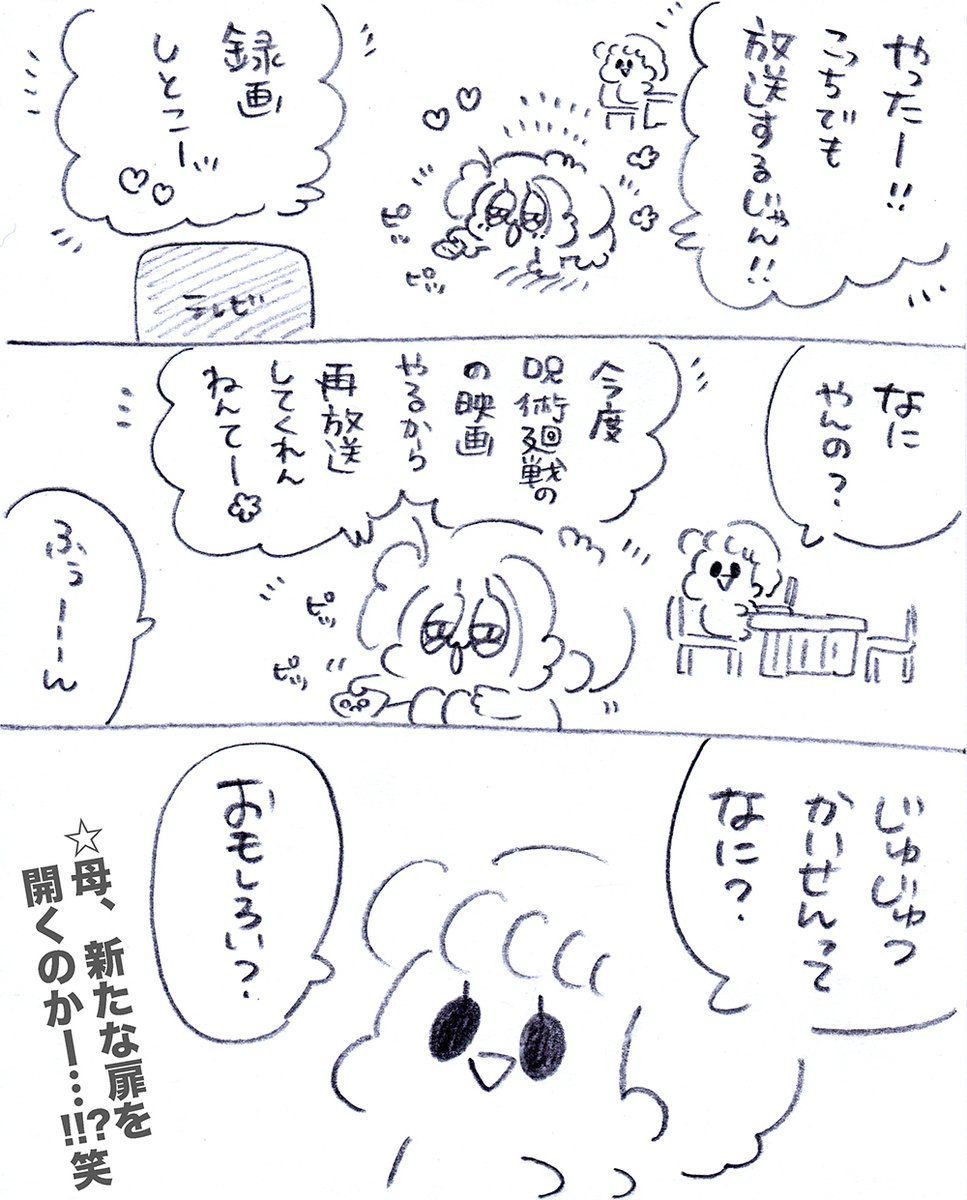 やったー!!
こっちでも
放送するじゃん!!
ピッ
ピッ
録画
しとこー
テレビ
なに
やんの?
今度
呪術廻戦の
の映画
やるから
再放送
してくれん
ねんてー
ピッ
ピッ
ふぅーーん
じゅじゅつ
かいせんって
なに?
おもしろい?
☆母、新たな扉を
開くのかー…!!?笑